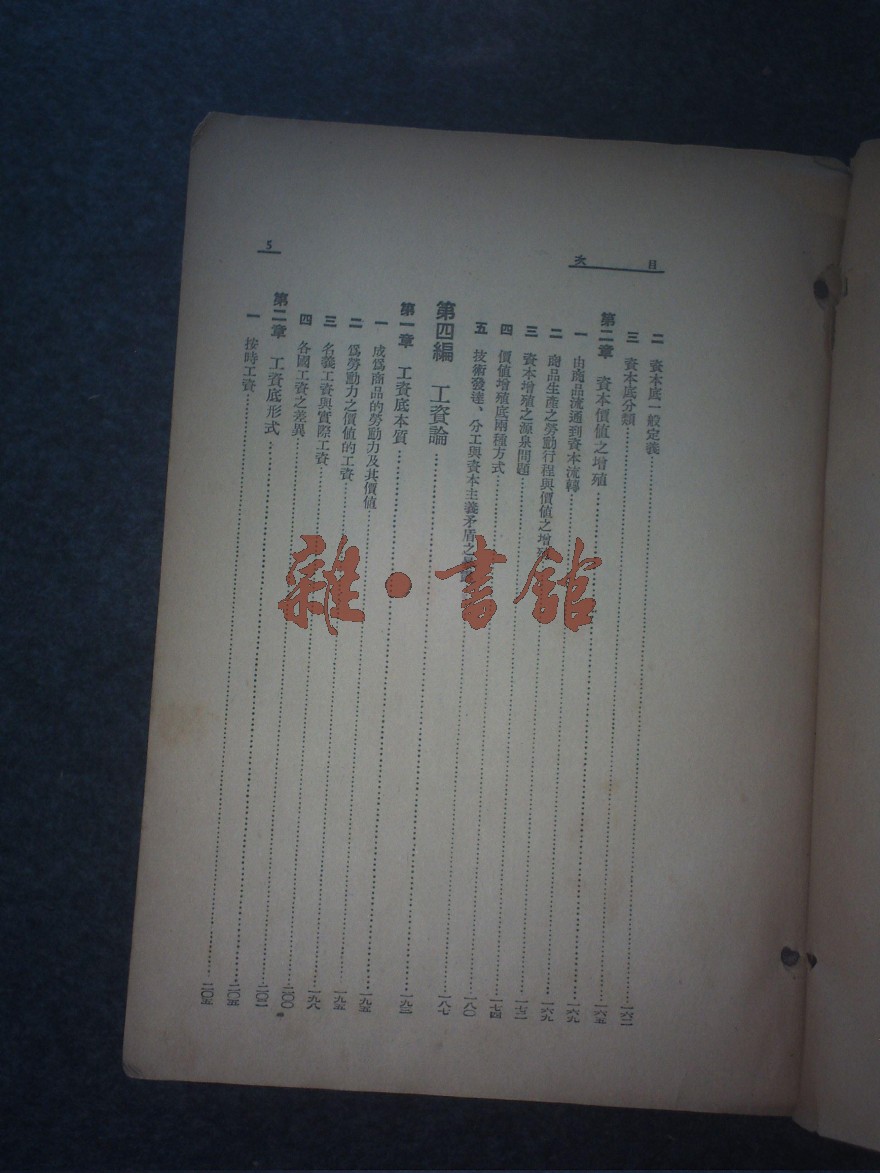 目次
5
二 資本底一般定義 一六二
三 資本底分類 一六五
第二章 資本價值之增殖 一六九
一 由商品流通到資本流轉 一六九
二 商品生產之勞動行程與價值之增殖
三 資本增殖之源泉問題 一七四
四 價值增殖底兩種方式 一八〇
五 技術發達、分工與資本主義矛盾之 一八七
第四編 工資論
第一章 工資底本質 一九五
一 成為商品的勞動力及其價值 一九五
二 為勞動力之價值的工資 一九八
三 名義工資與實際工資 二〇〇
四 各國工資之差異
第二章 工資底形式 二〇五
一 按時工資 二〇五
雜·書館